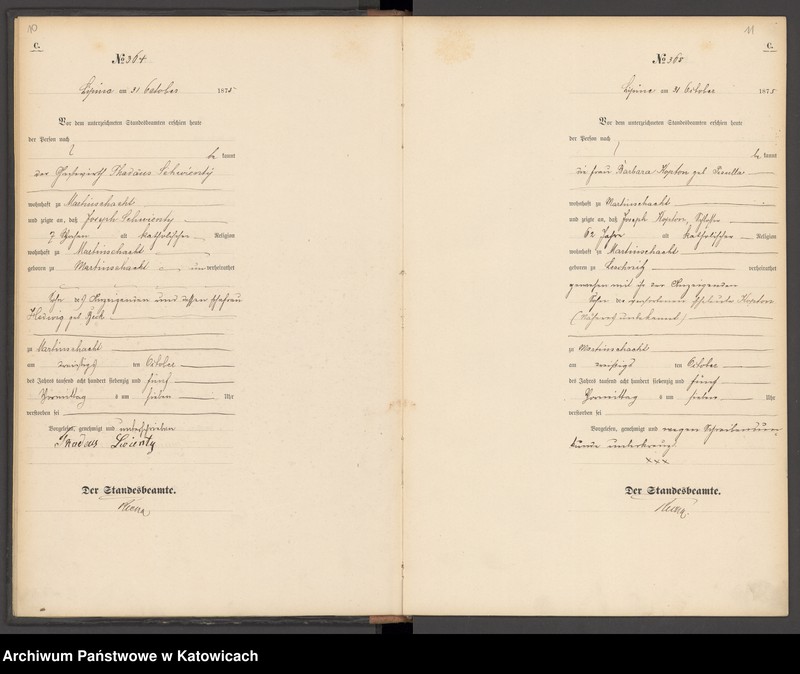 10
C.
№ 364
Lipine am 31 October 1875
Vor dem unterzeichneten Standesbeamten erschien heute
der Person nach
be kannt
der Thadäus Schwienty
wohnhaft zu Martinschacht
und zeigte an, daß Joseph Schwienty
7 alt katholischer Religion
wohnhaft zu Martinschacht
geboren zu Martinschacht unverheirathet
Sohn des Anzeigenden und dessen Ehefrau
Hedwig geb.
zu Martinschacht
am dreißigsten October
des Jahres tausend acht hundert siebenzig und fünf
Vormittag s um sieben Uhr
verstorben sei
Vorgelesen, genehmigt und unterschrieben
Der Standesbeamte.
11
C.
№ 365
Lipine am 31 October 1875
Vor dem unterzeichneten Standesbeamten erschien heute
der Person nach
be kannt
die Frau Barbara Kopton geb.
wohnhaft zu Martinschacht
und zeigte an, daß Joseph Kopton, Schlosser
62 Jahr alt katholischer Religion
wohnhaft zu Martinschacht
geboren zu Leschnitz verheirathet
gewesen mit der Anzeigenden
Sohn der verstorbenen Eheleute Kopton
(Näheres unbekannt)
zu Martinschacht
am dreißigsten October
des Jahres tausend acht hundert siebenzig und fünf
Vormittag s um sieben Uhr
verstorben sei
Vorgelesen, genehmigt und wegen Schreibensun-
kunde unterkreuzt
xxx
Der Standesbeamte.
Archiwum Państwowe w Katowicach